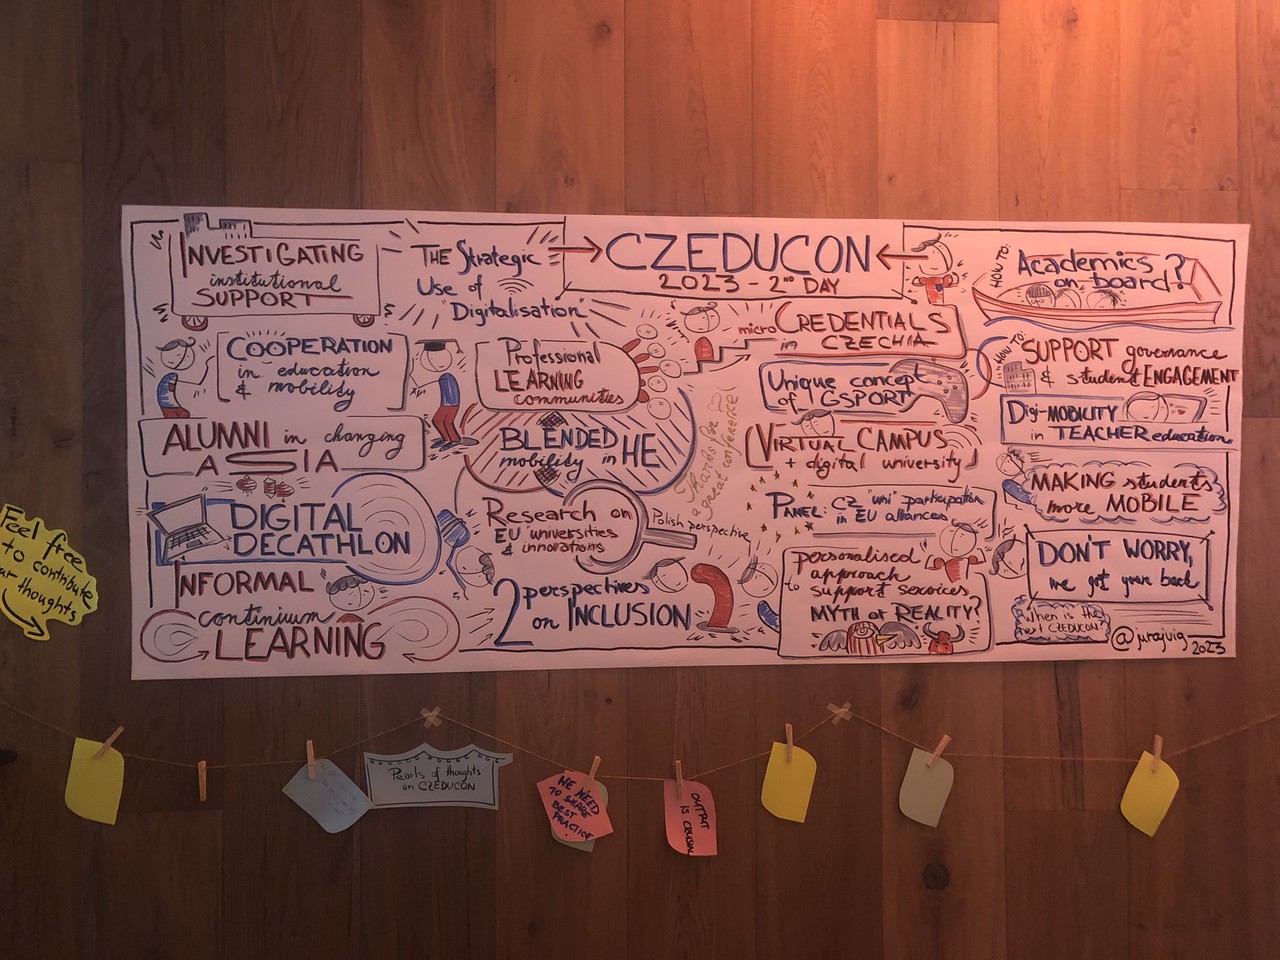 INVESTIGATING
institutional
SUPPORT
THE Strategic
Use of
"Digitalisation"
CZEDUCON
2023 - 2ND DAY
HOW TO:
Academics
on board?
COOPERATION
in education
& mobility
Professional
LEARNING
communities
micro CREDENTIALS
in CZECHIA
HOW TO:
SUPPORT governance
& student ENGAGEMENT
Unique concept
of GSPORT
ALUMNI in changing
ASIA
BLENDED
mobility in HE
Thanks for
a great conference!
VIRTUAL CAMPUS
+ digital university
Digi-MOBILITY
in TEACHER education
MAKING students
more MOBILE
DIGITAL
DECATHLON
Research on
EU "universities
& innovations
Polish perspective
PANEL: CZ "uni" participation
in EU alliances
DON'T WORRY,
we got your back
INFORMAL
continium
LEARNING
2 perspectives
on INCLUSION
personalised
approach
to support services
MYTH or REALITY?
When is the
next CZEDUCON?
@jurajvig
2023
Feel free
to contribute
ur thoughts
Pearls of thoughts
on CZEDUCON
WE NEED
TO SHARE
BEST
PRACTICE!
OUTPUT
IS CRUSIAL